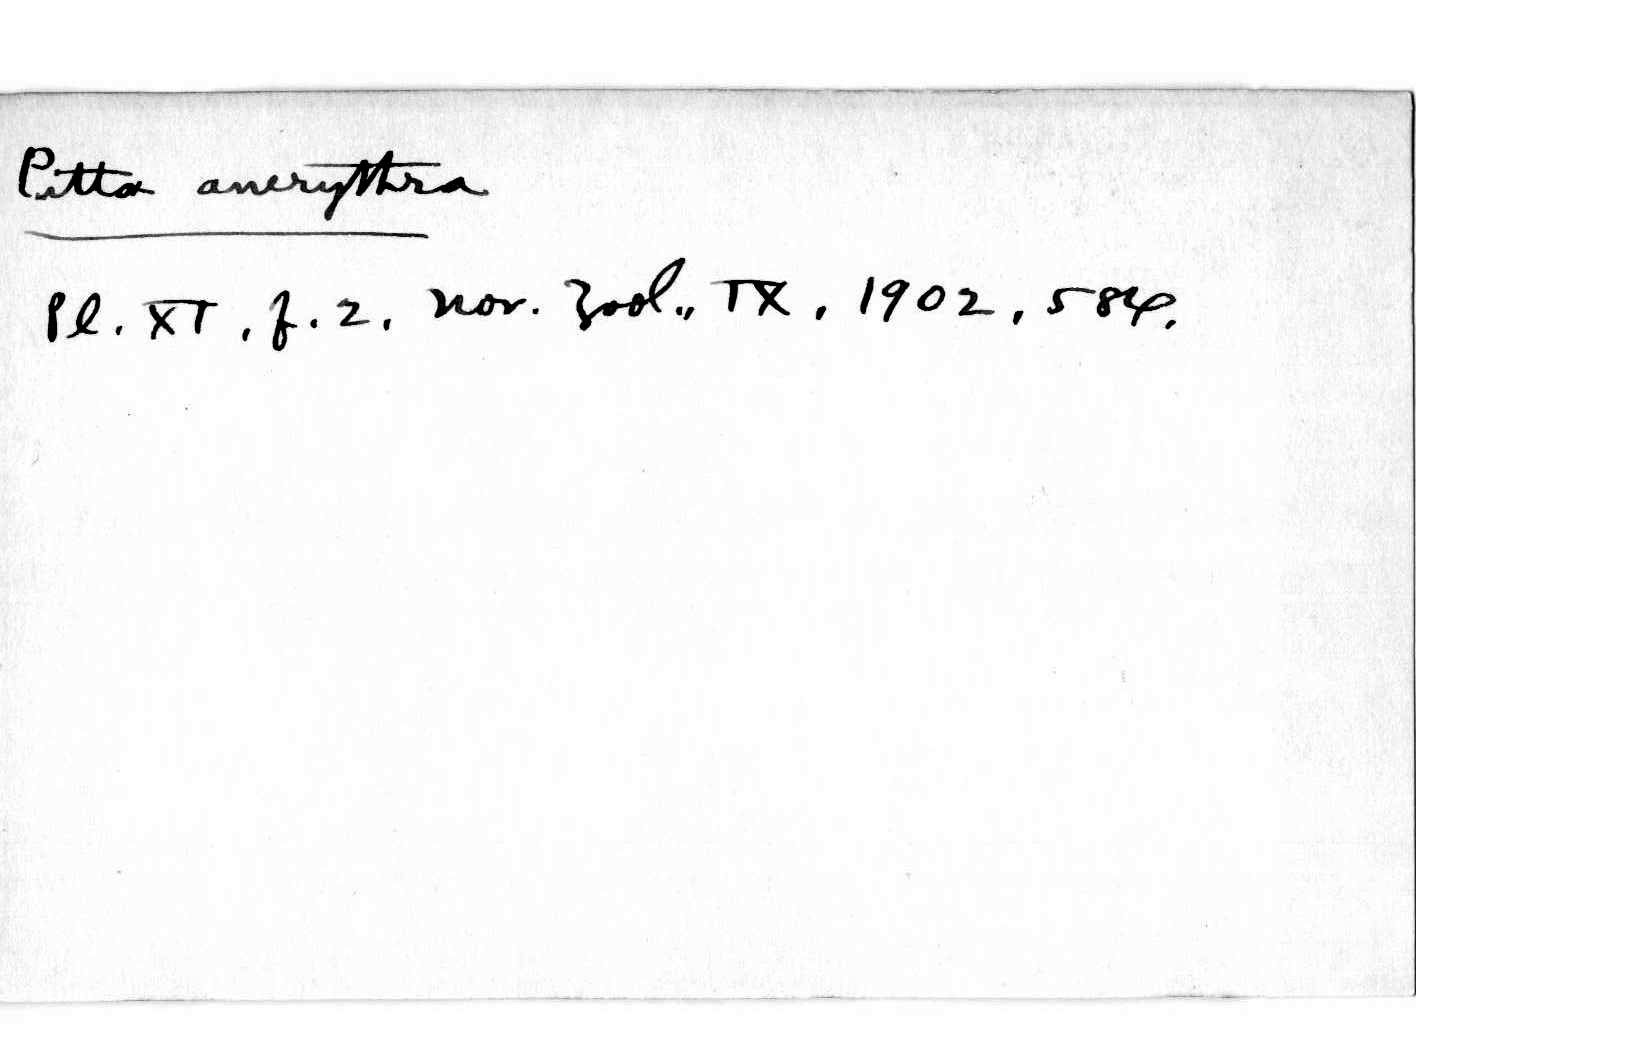 Pitta anerythra
Pl. XI, f. 2, Nov. Zool., IX, 1902, 584.